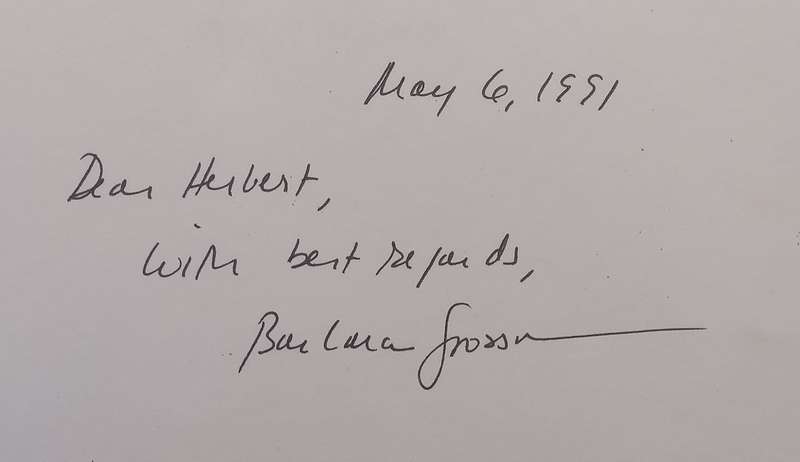 May 6, 1991
Dear Herbert,
With best regards,
Barbara Grossman